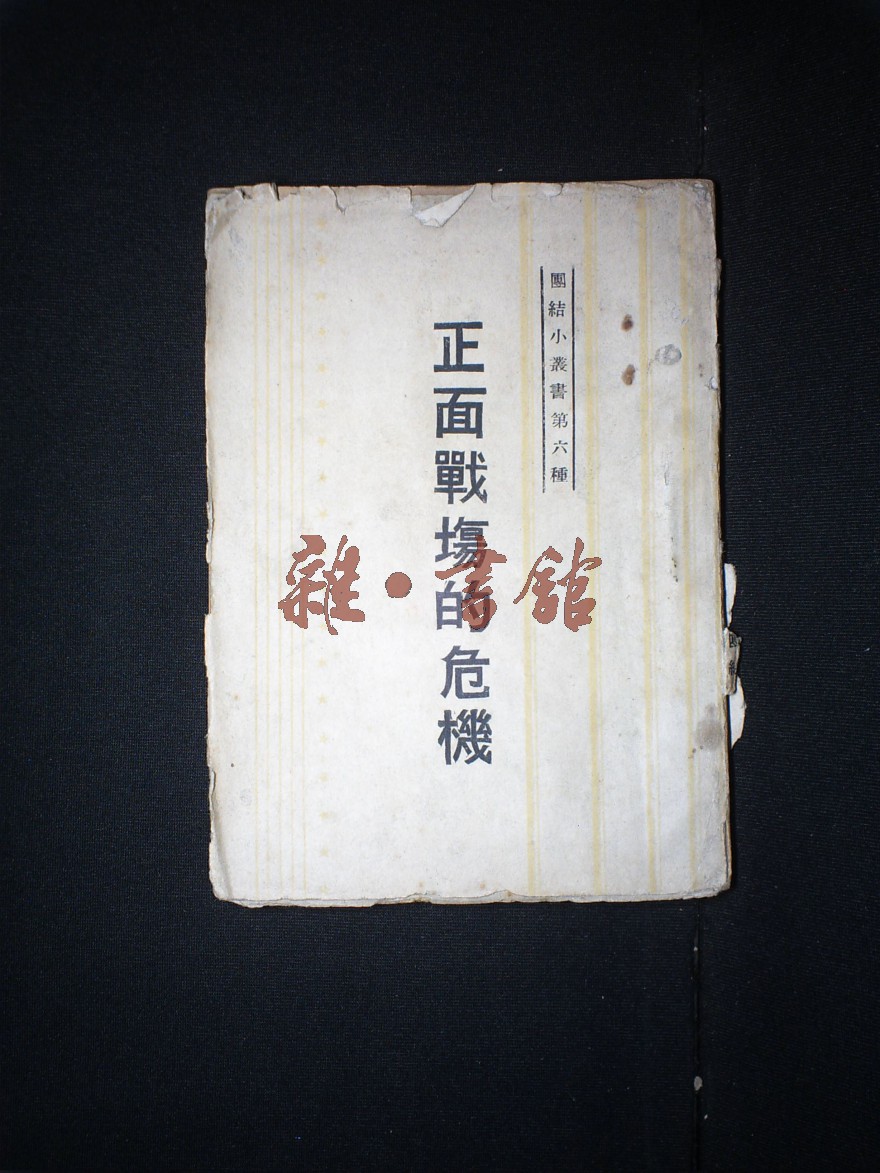 團結小叢書第六種
正面戰場的危機
雜·書館